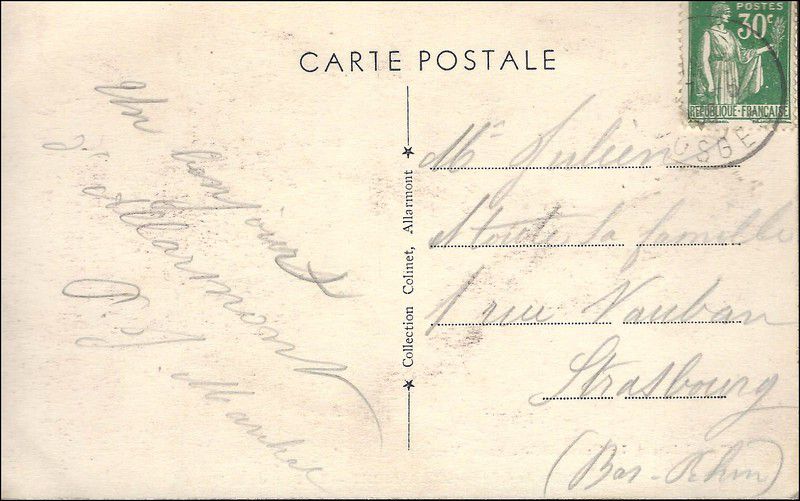 CARTE POSTALE
POSTES
30c
REPUBLIQUE-FRANÇAISE
OSGE
Un bonjour
d'Allarmont
Collection Colinet, Allarmont
Mr Julien
toute la famille
1 rue Vauban
Strasbourg
(Bas-Rhin)